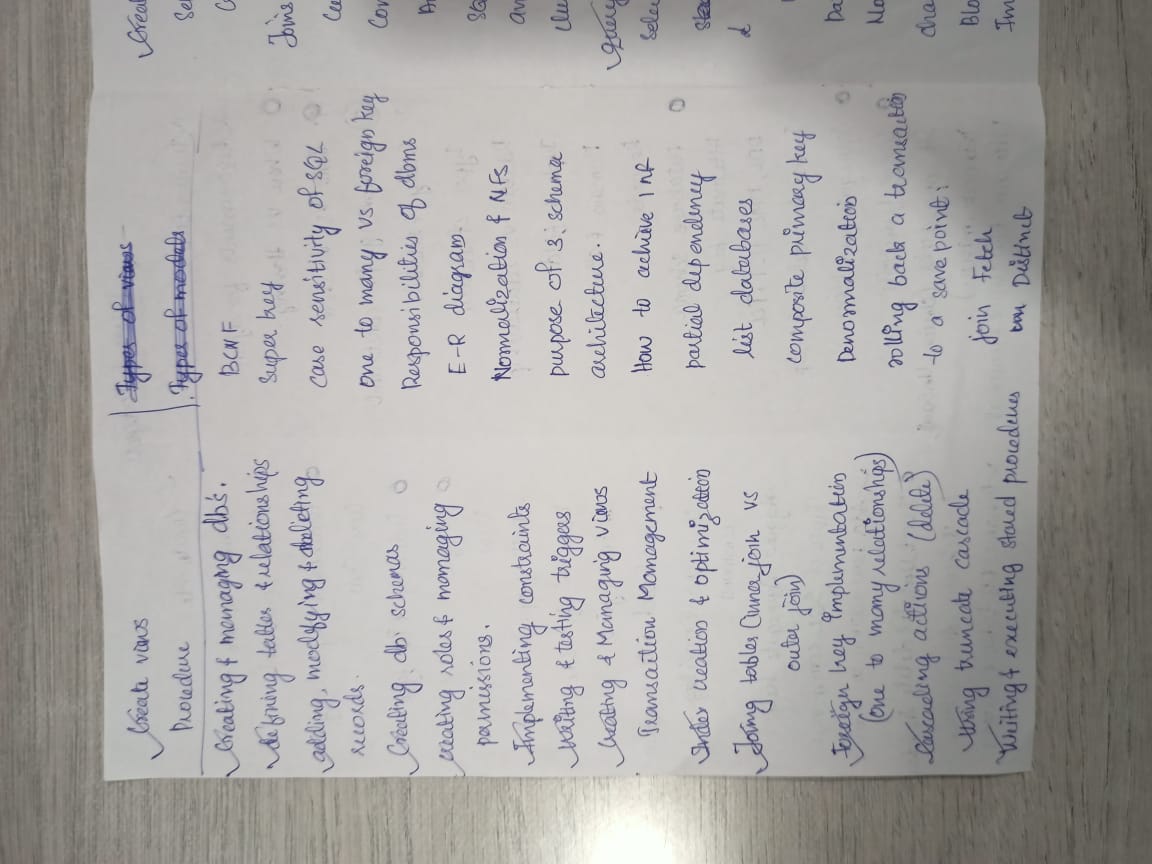 Create views
Procedure
Creating & managing db's.
defining tables & relationships
adding, modifying & deleting
records.
Creating db schemas
creating roles & managing
permissions.
Implementing constraints
Writing & testing triggers
Creating & Managing views
Transaction Management
Index creation & optimization
Joing tables (inner join vs
outer join)
Foreign key Implementation
(one to many relationships)
Cascading actions (delete)
Using truncate cascade
Writing & executing stored procedures
Types of views
Types of models
BCNF
Super key
case sensitivity of SQL
one to many vs foreign key
Responsibilities of dbms
E-R diagram.
Normalization & NFs
purpose of 3 schema
architecture.
How to achieve 1 NF
partial dependency
list databases
composite primary key
Denormalization
rolling back a transaction
to a savepoint:
join Fetch
Distinct
Creat
Joins